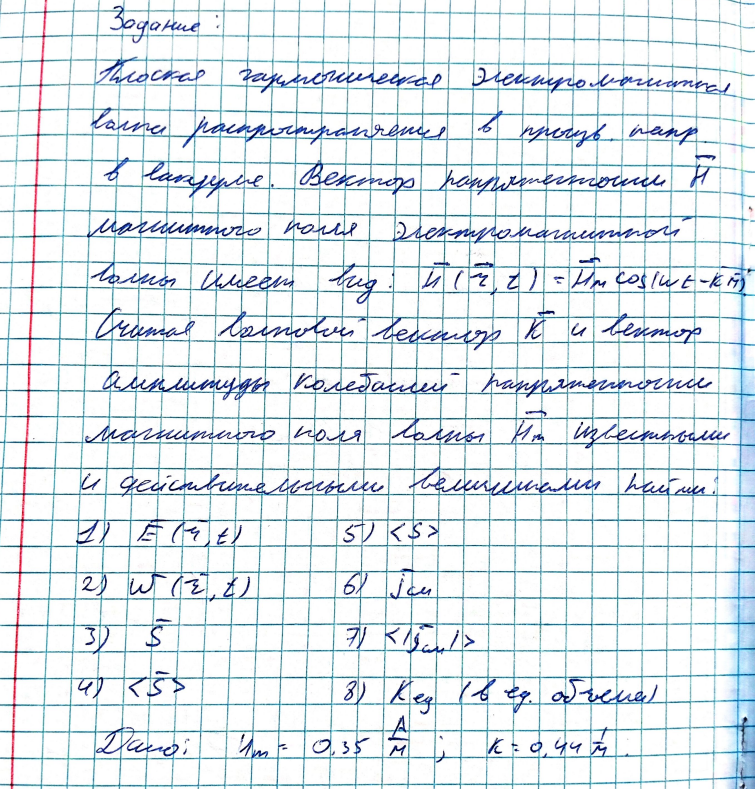 Задание:
Плоская гармоническая электромагнитная
волна распространяется в произв. напр.
в вакууме. Вектор напряженности H̅
магнитного поля электромагнитной
волны имеет вид: H⃗(r⃗,t) = H⃗m cos(ωt-k̅r̅).
Считая волновой вектор k̅ и вектор
амплитуды колебаний напряженности
магнитного поля волны H̅m известными
и действительными величинами найти:
1) E̅(r̅,t) 5) <S>
2) w(r̅,t) 6) j̅см
3) S̅ 7) <|j̅см|>
4) <S̅> 8) Kед (в ед. объема)
Дано: Hm = 0,35 А/м ; k = 0,44 1/м.